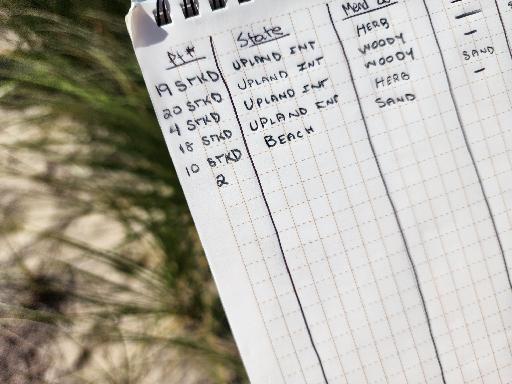 Pt# State
19 STKD UPLAND INT HERB —
20 STKD UPLAND INT WOODY -
4 STKD UPLAND INT WOODY SAND
18 STKD UPLAND INT HERB -
10 STKD BEACH SAND
2